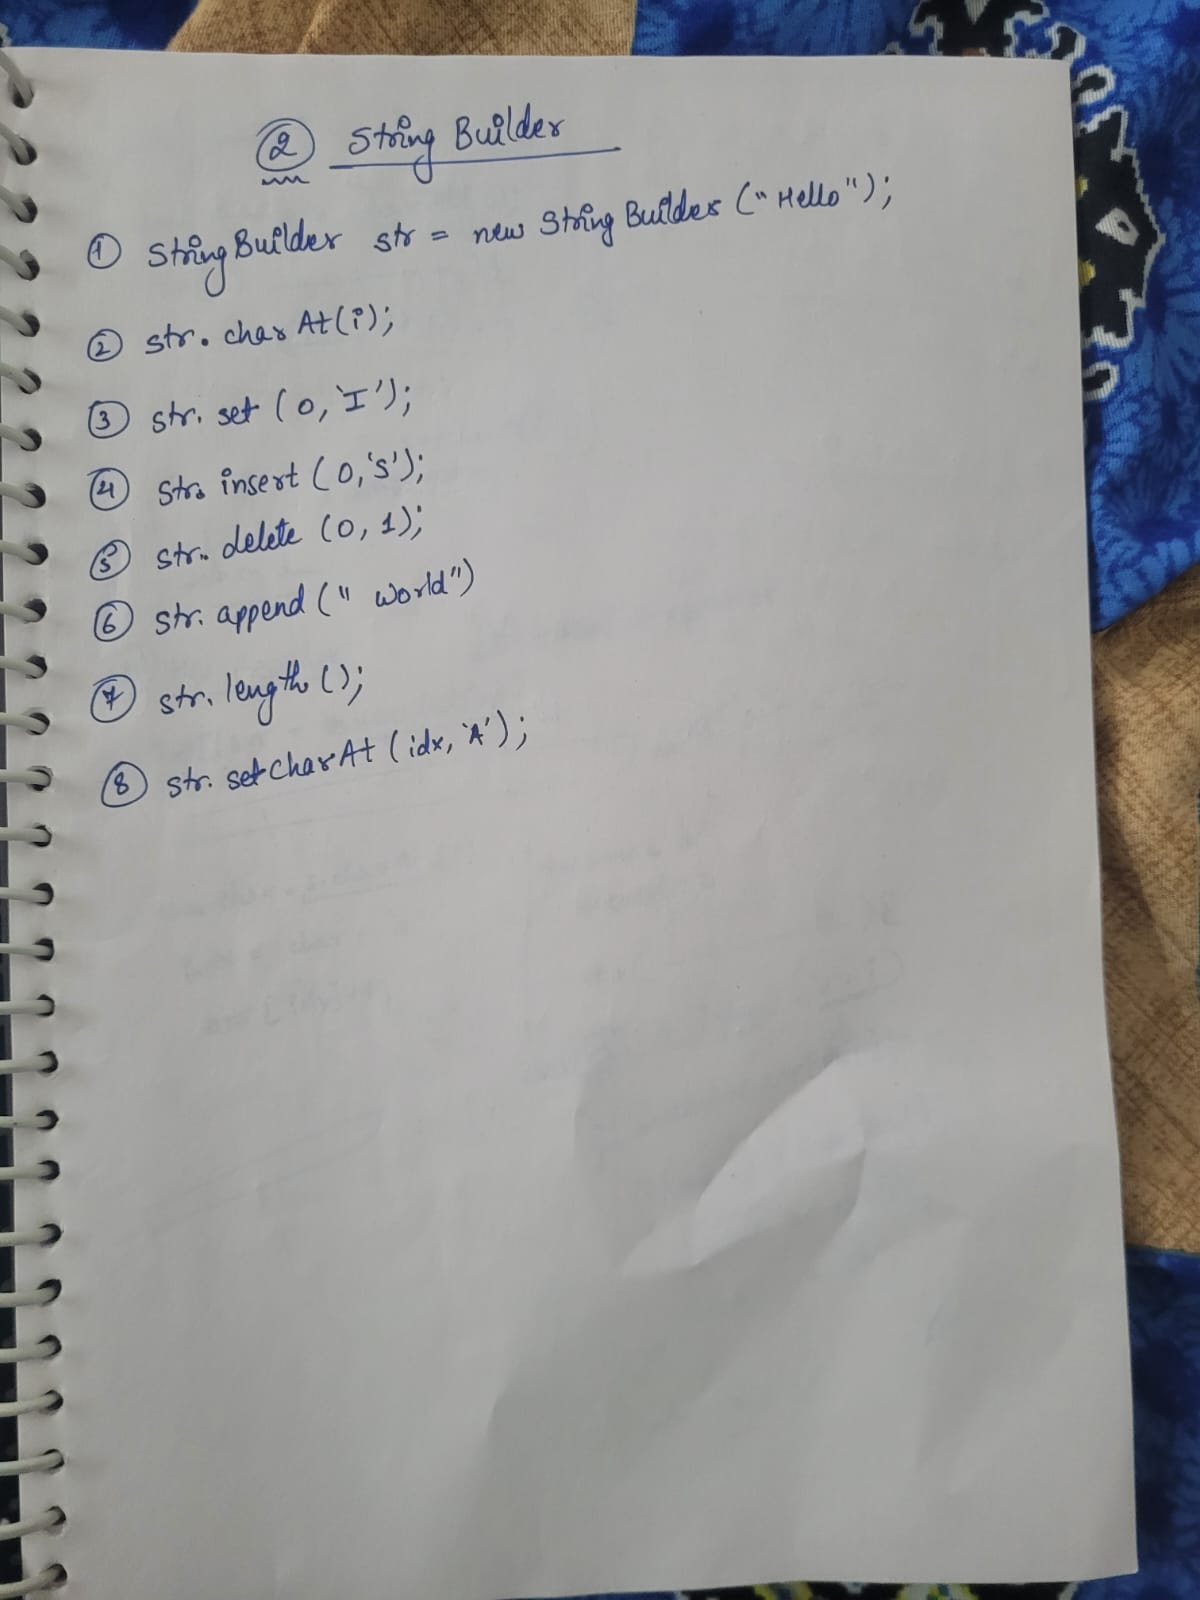 ② String Builder
① StringBuilder str = new StringBuilder ("Hello");
② str. charAt(i);
③ str. set (0, 'I');
④ str. insert (0, 's');
⑤ str. delete (0, 1);
⑥ str. append (" world")
⑦ str. length ();
⑧ str. setCharAt (idx, 'A');